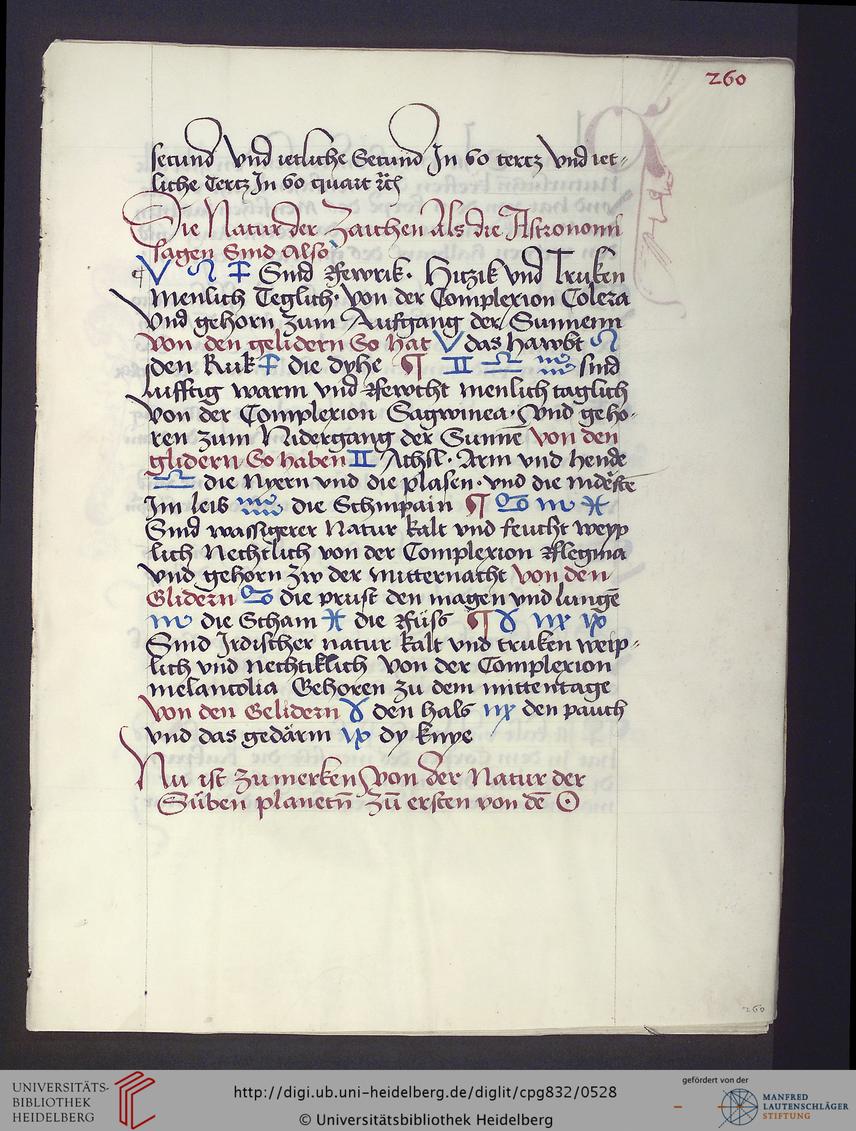 260
secund Vnd ietliche Secund In 60 tertz Vnd iet-
liche Tertz In 60 quart
Die Natur der Zaichen Als die Astronomi
sagen Sind Also
♈ ♌ ♐ Sind Fewrik· Hitzik vnd Truken
Menlich Teglich· von der Complexion Colera
Vnd gehorn zum Aufgang der Sunnenn
Von den gelidern So hat ♈ das hawbt ♌
den Ruk ♐ die dyhe ¶ ♊ ♎ ♒ sind
lufftig warm vnd Fewcht menlich taglich
Von der Complexion Sagwinea· Vnd geho-
ren zum Nidergang der Sunnē von den
glidern So haben ♊ Achsl· Arm vnd hende
♎ die Nyern vnd die plasen· vnd die
Im leib ♒ die Schinpain ¶ ♋ ♏ ♓
Sind wassigerer Natur kalt vnd feucht weyp
lich Nechtlich von der Complexion Flegma
vnd gehorn zw der mitternacht von den
Glidern ♋ die prust den magen vnd lungē
♏ die Scham ♓ die Füsß ¶ ♉ ♍ ♑
Sind Irdischer natur kalt vnd truken weip-
lich vnd nechtiklich Von der Complexion
melancolia Gehoren zu dem mittentage
Von den Gelidern ♉ den hals ♍ den pauch
vnd das gedärm ♑ dy knye
Nu ist zu merken Von der Natur der
Süben planetn̄ zū ersten von dē ☉
260
UNIVERSITÄTS-
BIBLIOTHEK
HEIDELBERG
http://digi.ub.uni-heidelberg.de/diglit/cpg832/0528
© Universitätsbibliothek Heidelberg
gefördert von der
MANFRED
LAUTENSCHLÄGER
STIFTUNG